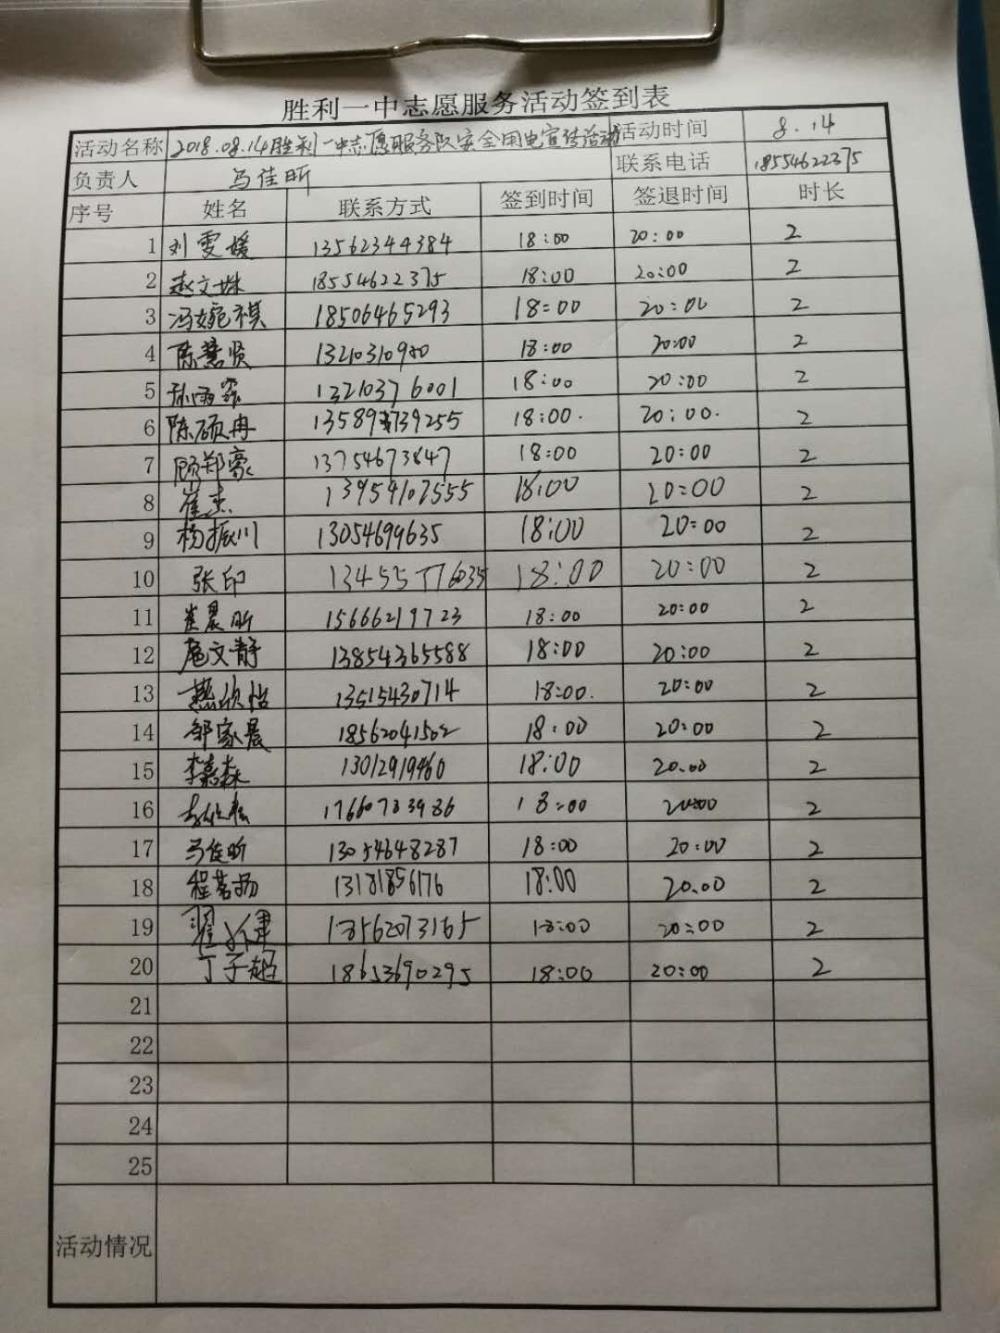 胜利一中志愿服务活动签到表
活动名称 2018.08.14胜利一中志愿服务队安全用电宣传活动 活动时间 8.14
负责人 马佳昕 联系电话 18554622375
序号 姓名 联系方式 签到时间 签退时间 时长
1 刘雯媛 13562344384 18:00 20:00 2
2 赵文姝 18554622375 18:00 20:00 2
3 冯婉祺 18506465293 18:00 20:00 2
4 陈慧贤 18:00 20:00 2
5 孙雨 13210376001 18:00 20:00 2
6 陈硕冉 18:00. 20:00. 2
7 顾郑豪 13754673847 18:00 20:00 2
8 崔杰 13954107555 18:00 20:00 2
9 杨振川 13054699635 18:00 20:00 2
10 张印 13455776035 18:00 20:00 2
11 崔晨昕 15666219723 18:00 20:00 2
12 文静 13854365588 18:00 20:00 2
13 欣怡 13515430714 18:00. 20:00 2
14 邹家晨 18562041502 18:00 20:00 2
15 李嘉森 13012919460 18:00 20.00 2
16 17660783986 18:00 20:00 2
17 马佳昕 13054648287 18:00 20:00 2
18 程茗扬 13181856176 18:00 20.00 2
19 翟 18562073165 18:00 20:00 2
20 丁子超 18653690295 18:00 20:00 2
21
22
23
24
25
活动情况